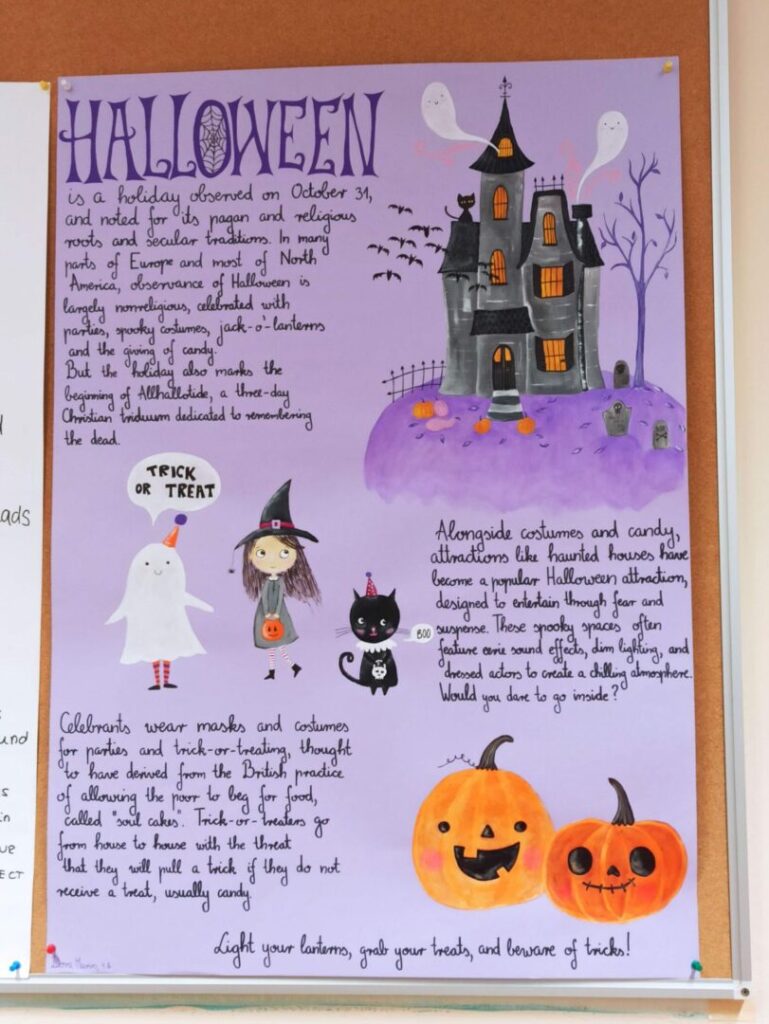 HALLOWEEN
is a holiday observed on October 31,
and noted for its pagan and religious
roots and secular traditions. In many
parts of Europe and most of North
America, observance of Halloween is
largely nonreligious, celebrated with
parties, spooky costumes, jack-o'-lanterns
and the giving of candy.
But the holiday also marks the
beginning of Allhallotide, a three-day
Christian triduum dedicated to remembering
the dead.
TRICK
OR TREAT
BOO
Alongside costumes and candy,
attractions like haunted houses have
become a popular Halloween attraction,
designed to entertain through fear and
suspense. These spooky spaces often
feature eerie sound effects, dim lighting, and
dressed actors to create a chilling atmosphere.
Would you dare to go inside?
Celebrants wear masks and costumes
for parties and trick-or-treating, thought
to have derived from the British practice
of allowing the poor to beg for food,
called "soul cakes". Trick-or-treaters go
from house to house with the threat
that they will pull a trick if they do not
receive a treat, usually candy
Light your lanterns, grab your treats, and beware of tricks!